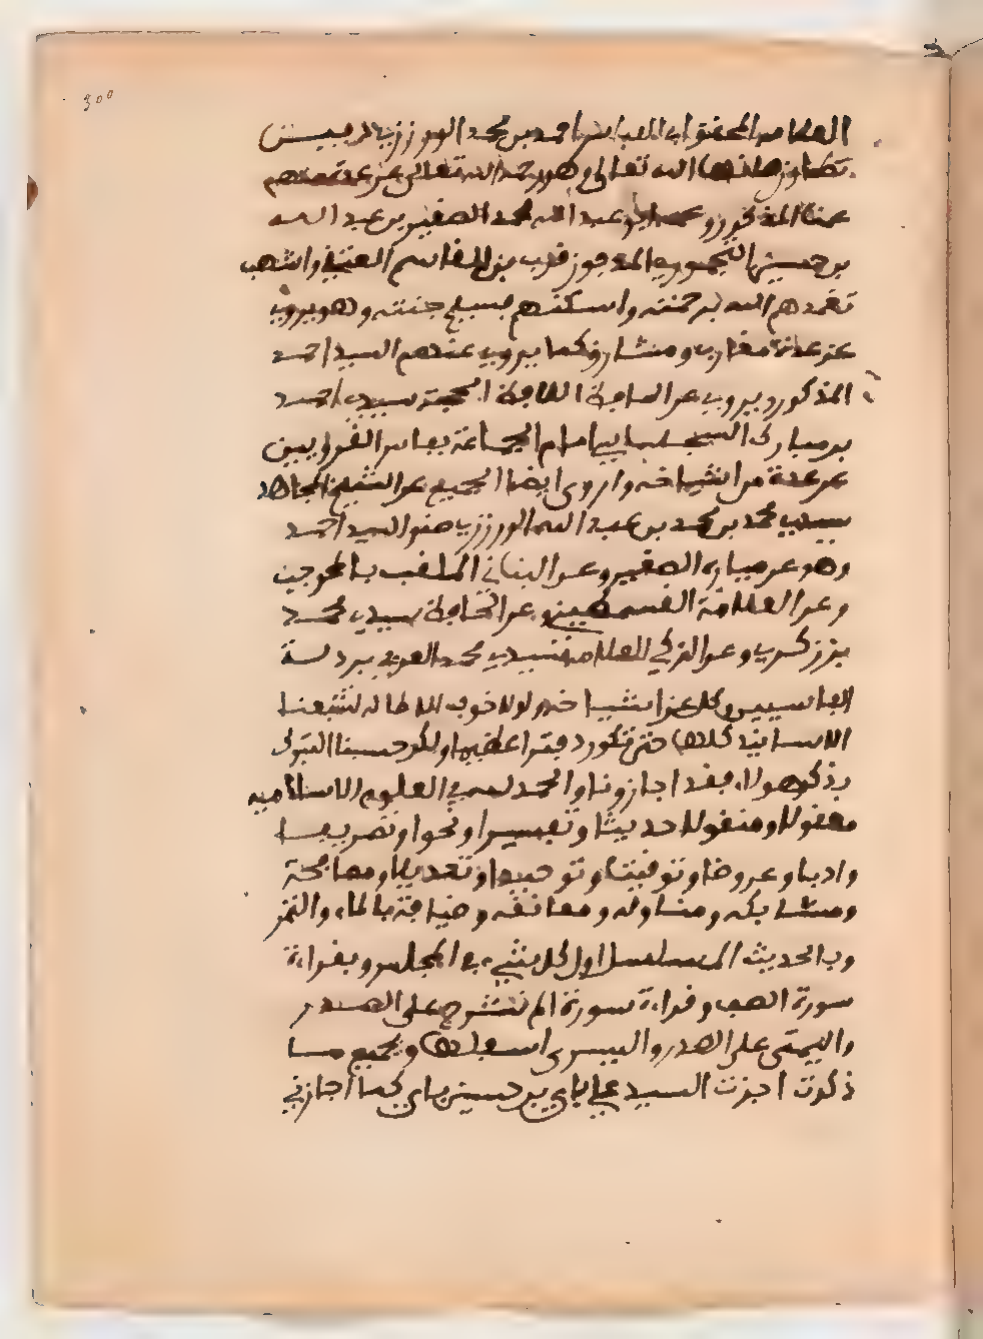 300
العلامة المحقق ابو العباس احمد بن محمد الورززي دبيس
تطاون صانها الله تعالى وهو رحمه الله تعالى عن عدة منهم
عمنا المذكور وعن ابو عبد الله محمد الصغير بن عبد الله
بن حسين المدجون قرب بن بلقاسم واشهب
تغمدهم الله برحمته واسكنهم بسيح جنته وهو يروي
عن عدة مغاربة ومشارفة كما يروي عنهم السيد احمد
المذكور ويروي عن الحافظ الحجة سيدي احمد
بن مبارك السجلماسي امام الجماعة بفاس القرويين
عن عدة من اشياخه واروي ايضا الجميع عن الشيخ المجاهد
سيدي محمد بن محمد بن عبد الله الورززي صنو السيد احمد
وهو عن مبارك الصغير وعن البناني الملقب بالحوجن
وعن العلامة القسمطيني وعن الحافظ سيدي محمد
بن زكري وعن الزكي العلامة سيدي محمد العربي بردلة
الفاسيين وكل عن اشياخه ولولا خوف الاطالة لتتبعنا
الاسانيد كلها حتى تكون دفترا عظيما ولكن حسبنا التبرك
بذكر هولاء فقد اجازونا والحمد لله في العلوم الاسلامية
معقولا ومنقولا حديثا وتفسيرا ونحوا وتصريفا
وادبا وعروضا وتوقيتا وتوحيدا وتعديلا ومصافحة
ومشابكة ومناولة ومعانقة وضيافة بالماء والتمر
وبالحديث المسلسل اول كل شيء في المجلس وبقراءة
سورة الصف وقراءة سورة الم نشرح على الصدر
واليمنى على الصدر واليسرى اسفلها وبجميع ما
ذكرت اجزت السيد علي باي بن حسين باي كما اجازني